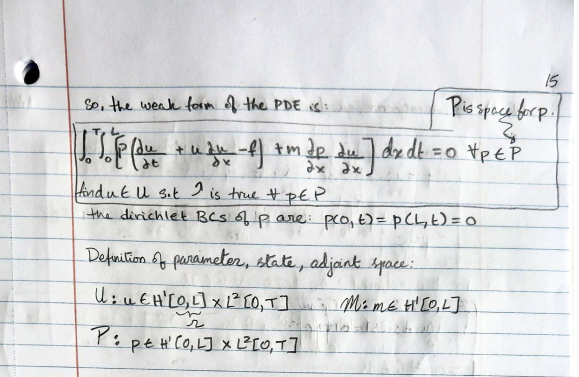 15
So, the weak form of the PDE is:
P is space for p.
∫₀ᵀ∫₀ᴸ[p(∂u/∂t + u ∂u/∂x - f) + m ∂p/∂x ∂u/∂x] dx dt = 0 ∀p∈P
find u ∈ U s.t is true ∀ p∈P
the dirichlet BCs of p are: p(0,t) = p(L,t) = 0
Definition of parameter, state, adjoint space:
U: u ∈ H'[0,L] × L²[0,T] M: m ∈ H'[0,L]
Ω
P: p ∈ H'[0,L] × L²[0,T]